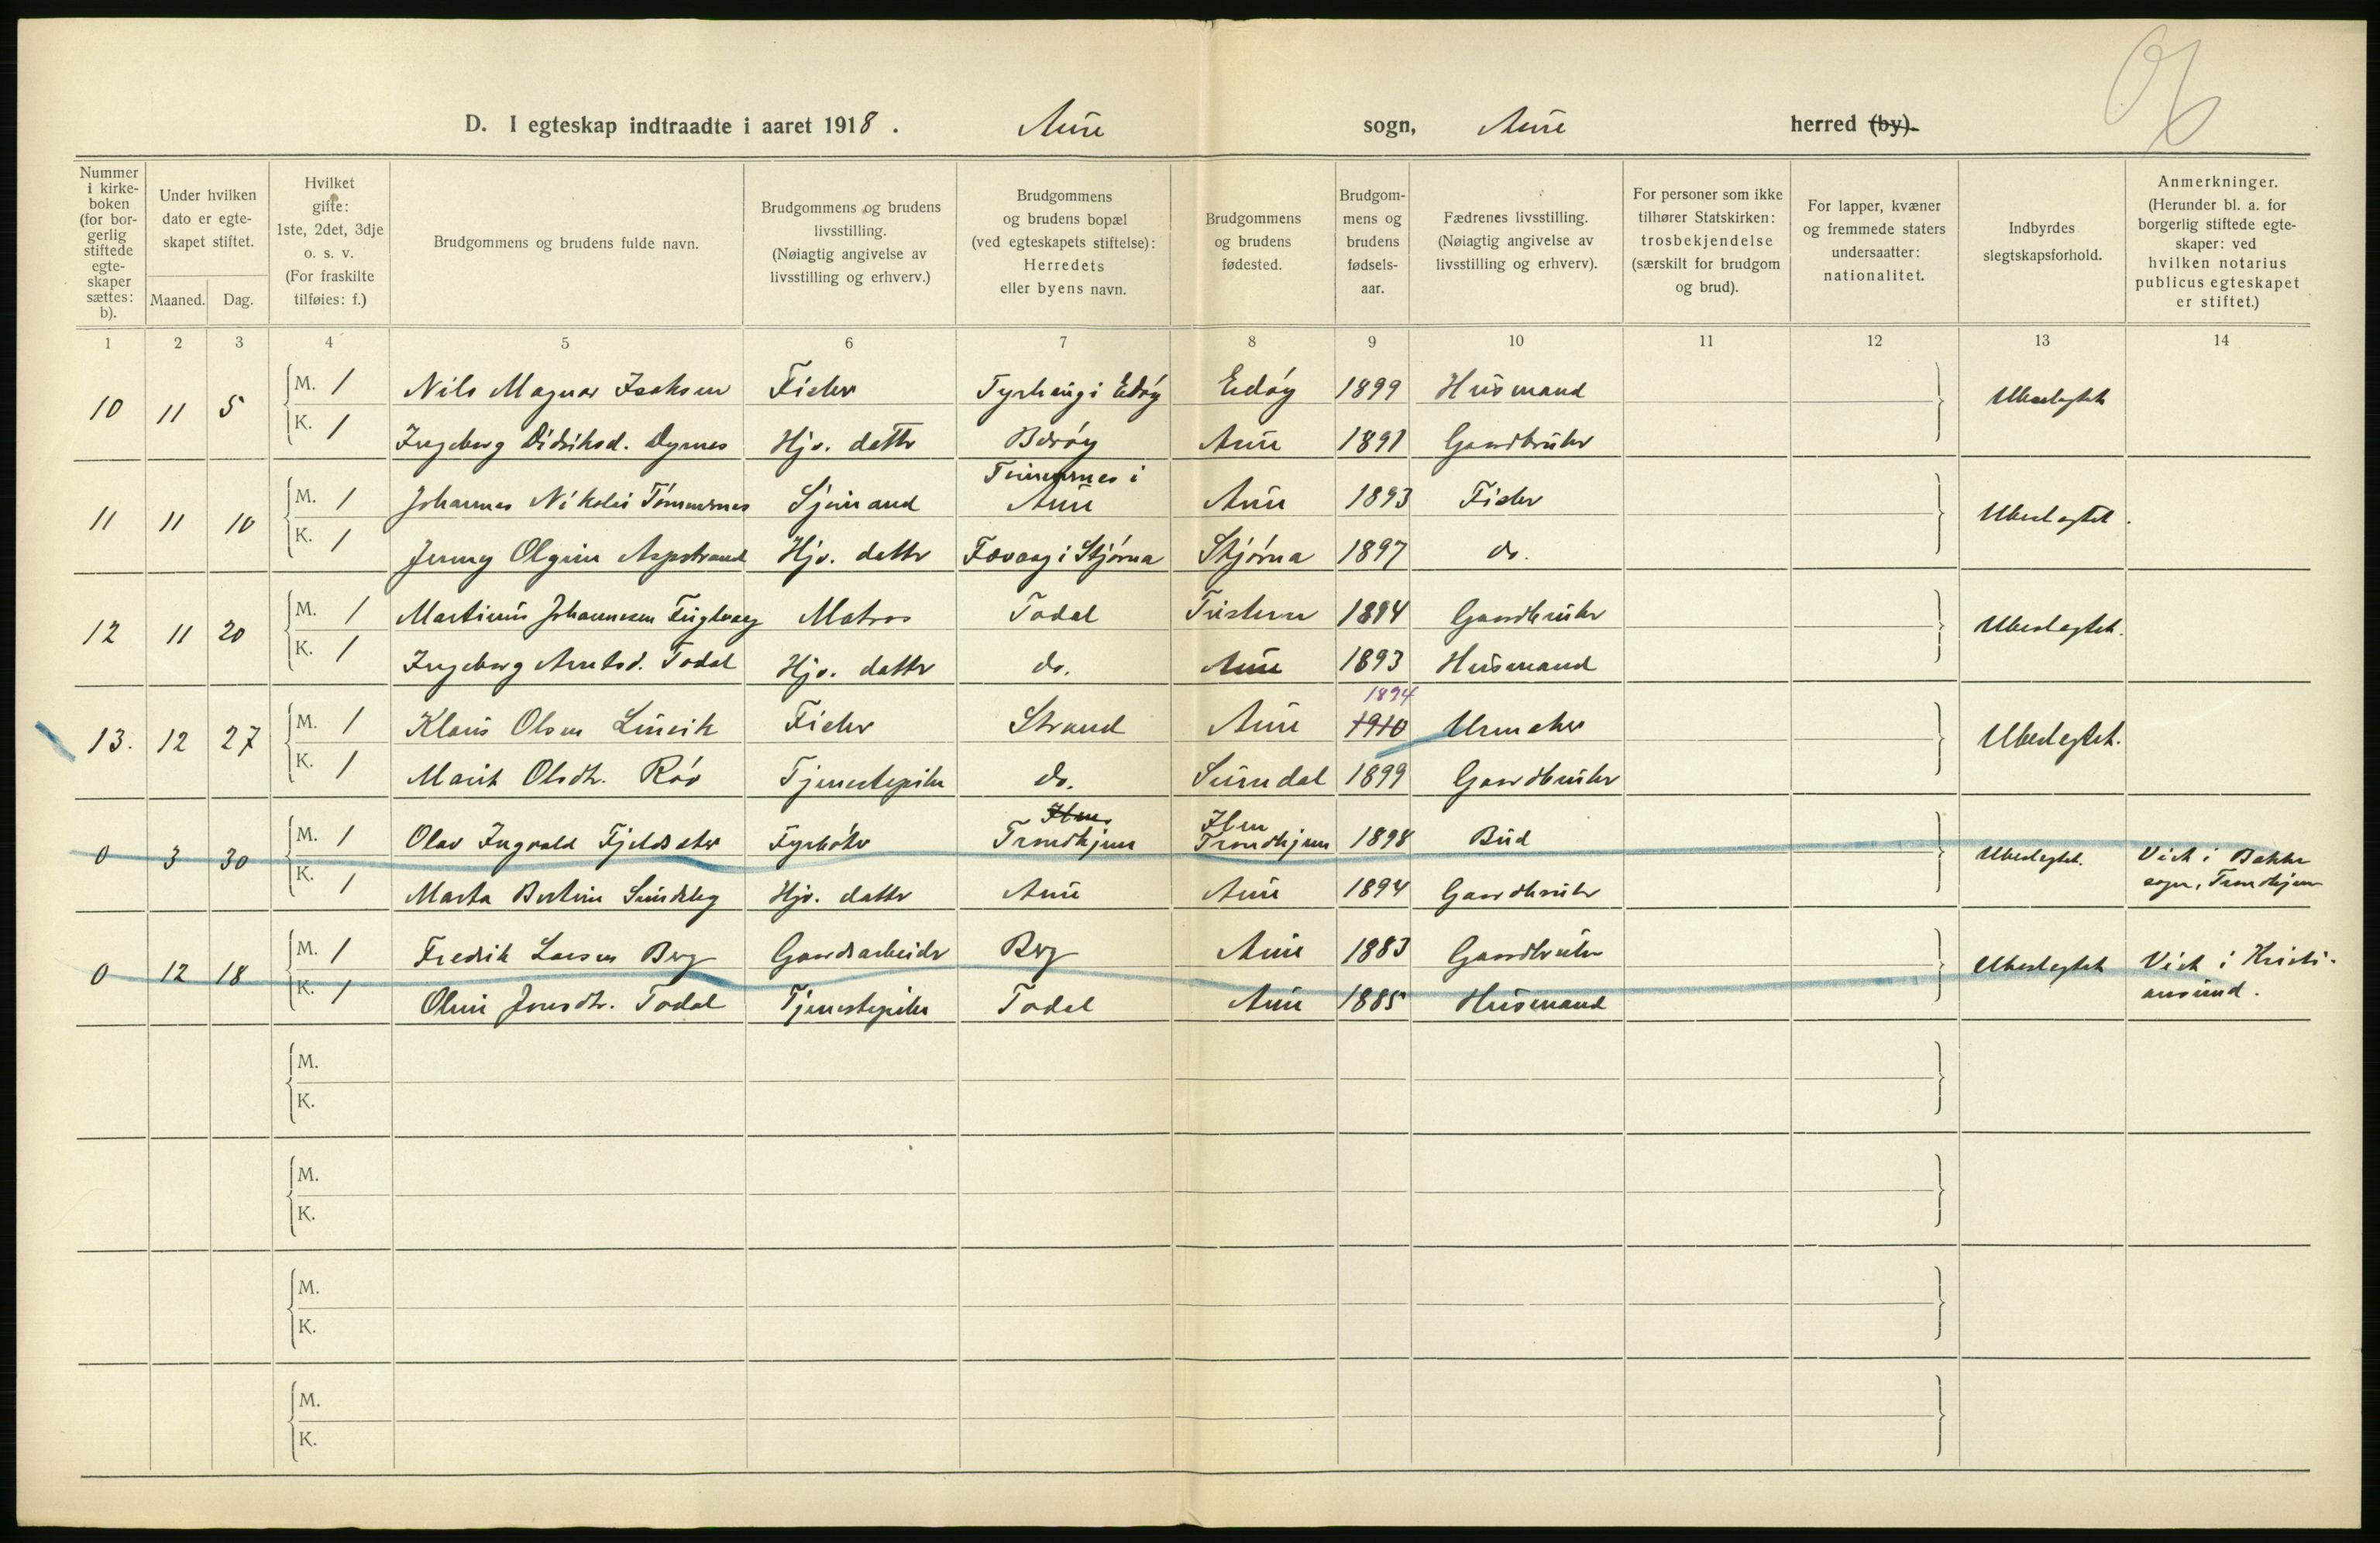 D. I egteskap indtraadte i aaret 1918. Aure sogn, Aure herred (by).
Nummer i kirke-boken (for bor-gerlig stiftede egte-skaper sættes: b).
Under hvilken dato er egte-skapet stiftet.
Maaned. Dag.
Hvilket gifte: 1ste, 2det, 3dje o. s. v. (For fraskilte tilføies: f.)
Brudgommens og brudens fulde navn.
Brudgommens og brudens livsstilling. (Nøiagtig angivelse av livsstilling og erhverv.)
Brudgommens og brudens bopæl (ved egteskapets stiftelse): Herredets eller byens navn.
Brudgommens og brudens fødested.
Brudgom-mens og brudens fødsels-aar.
Fædrenes livsstilling. (Nøiagtig angivelse av livsstilling og erhverv).
For personer som ikke tilhører Statskirken: trosbekjendelse (særskilt for brudgom og brud).
For lapper, kvæner og fremmede staters undersaatter: nationalitet.
Indbyrdes slegtskapsforhold.
Anmerkninger. (Herunder bl. a. for borgerlig stiftede egte-skaper: ved hvilken notarius publicus egteskapet er stiftet.)
1 2 3 4 5 6 7 8 9 10 11 12 13 14
10 11 5 M. 1 Nils Magnar Isaksen Fisker Tyrhaug i Edøy Edøy 1899 Husmand Ubeslegtet
K. 1 Ingeborg Didriksd. Dyrnes Hjv. datter Aure 1891 Gaardbruker
11 11 10 M. 1 Johannes Nikolai Tømmernes Sjømand Tømmernes i Aure Aure 1893 Fisker Ubeslegtet.
K. 1 Jenny Olgine Aspstrand Hjv. datter Fevaag i Stjørna Stjørna 1897 do.
12 11 20 M. 1 Martinus Johannesen Fuglvaag Matros Todal Tusteren 1894 Gaardbruker Ubeslegtet.
K. 1 Ingeborg Arntsd. Todal Hjv. datter do. Aure 1893 Husmand
1894
13. 12 27 M. 1 Klaus Olsen Lurvik Fisker Strand Aure 1910 Urmaker Ubeslegtet.
K. 1 Marit Olsdtr. Røv Tjenestepike do. Surndal 1899 Gaardbruker
Ilen Ilen
0 3 30 M. 1 Olav Ingvald Fjeldseter Fyrbøter Trondhjem Trondhjem 1898 Bud Ubeslegtet. Viet i Bakke
K. 1 Marta Bertine Hjv. datter Aure Aure 1894 Gaardbruker sogn, Trondhjem
0 12 18 M. 1 Fredrik Larsen Berg Gaardsarbeider Berg Aure 1883 Gaardbruker Ubeslegtet Viet i Kristi-
K. 1 Oline Jonsdtr. Todal Tjenestepike Todal Aure 1885 Husmand ansund.
M.
K.
M.
K.
M.
K.
M.
K.